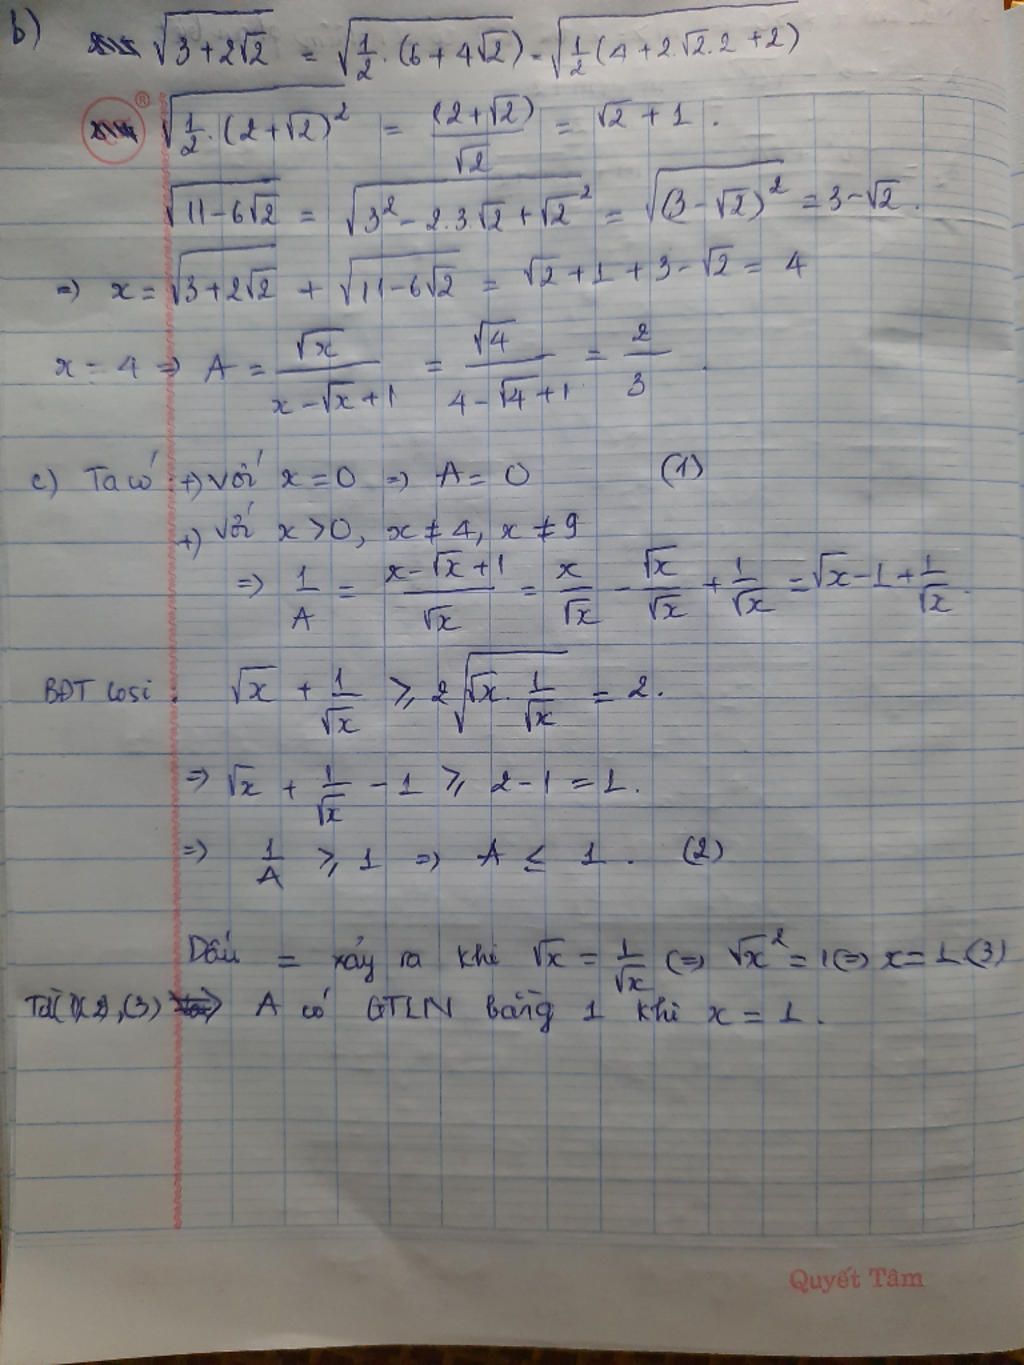 b) √(3+2√2) = √(1/2 · (6+4√2)) = √(1/2 (4+2.√2.2+2))
®
√(1/2 · (2+√2)²) = (2+√2)/√2 = √2 + 1 .
√(11-6√2) = √(3² - 2.3√2 + √2²) = √((3-√2)²) = 3-√2 .
=> x = √(3+2√2) + √(11-6√2) = √2 + 1 + 3 - √2 = 4
x = 4 => A = √x/(x-√x+1) = √4/(4-√4+1) = 2/3 .
c) Ta có : +) với x = 0 => A = 0 (1)
+) với x > 0, x ≠ 4, x ≠ 9
=> 1/A = (x-√x+1)/√x = x/√x - √x/√x + 1/√x = √x - 1 + 1/√x .
BĐT Cosi : √x + 1/√x ⩾ 2√(√x . 1/√x) = 2.
=> √x + 1/√x - 1 ⩾ 2 - 1 = 1.
=> 1/A ⩾ 1 => A ≤ 1 . (2)
Dấu = xảy ra khi √x = 1/√x (=> √x² = 1 (=> x = 1 (3)
Từ (1),(2),(3) A có GTLN bằng 1 khi x = 1 .
Quyết Tâm